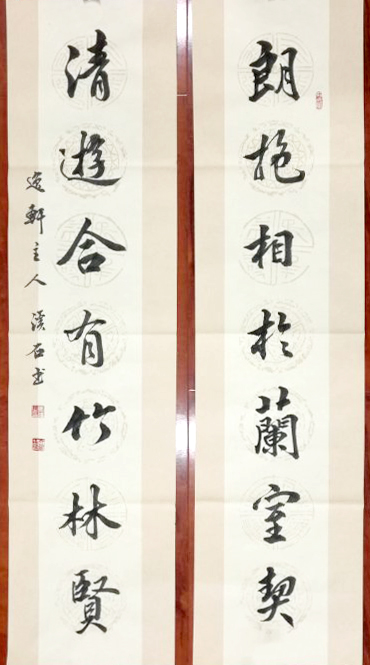 朗抱相於蘭室契
清遊合有竹林賢
逸軒主人 溪石书